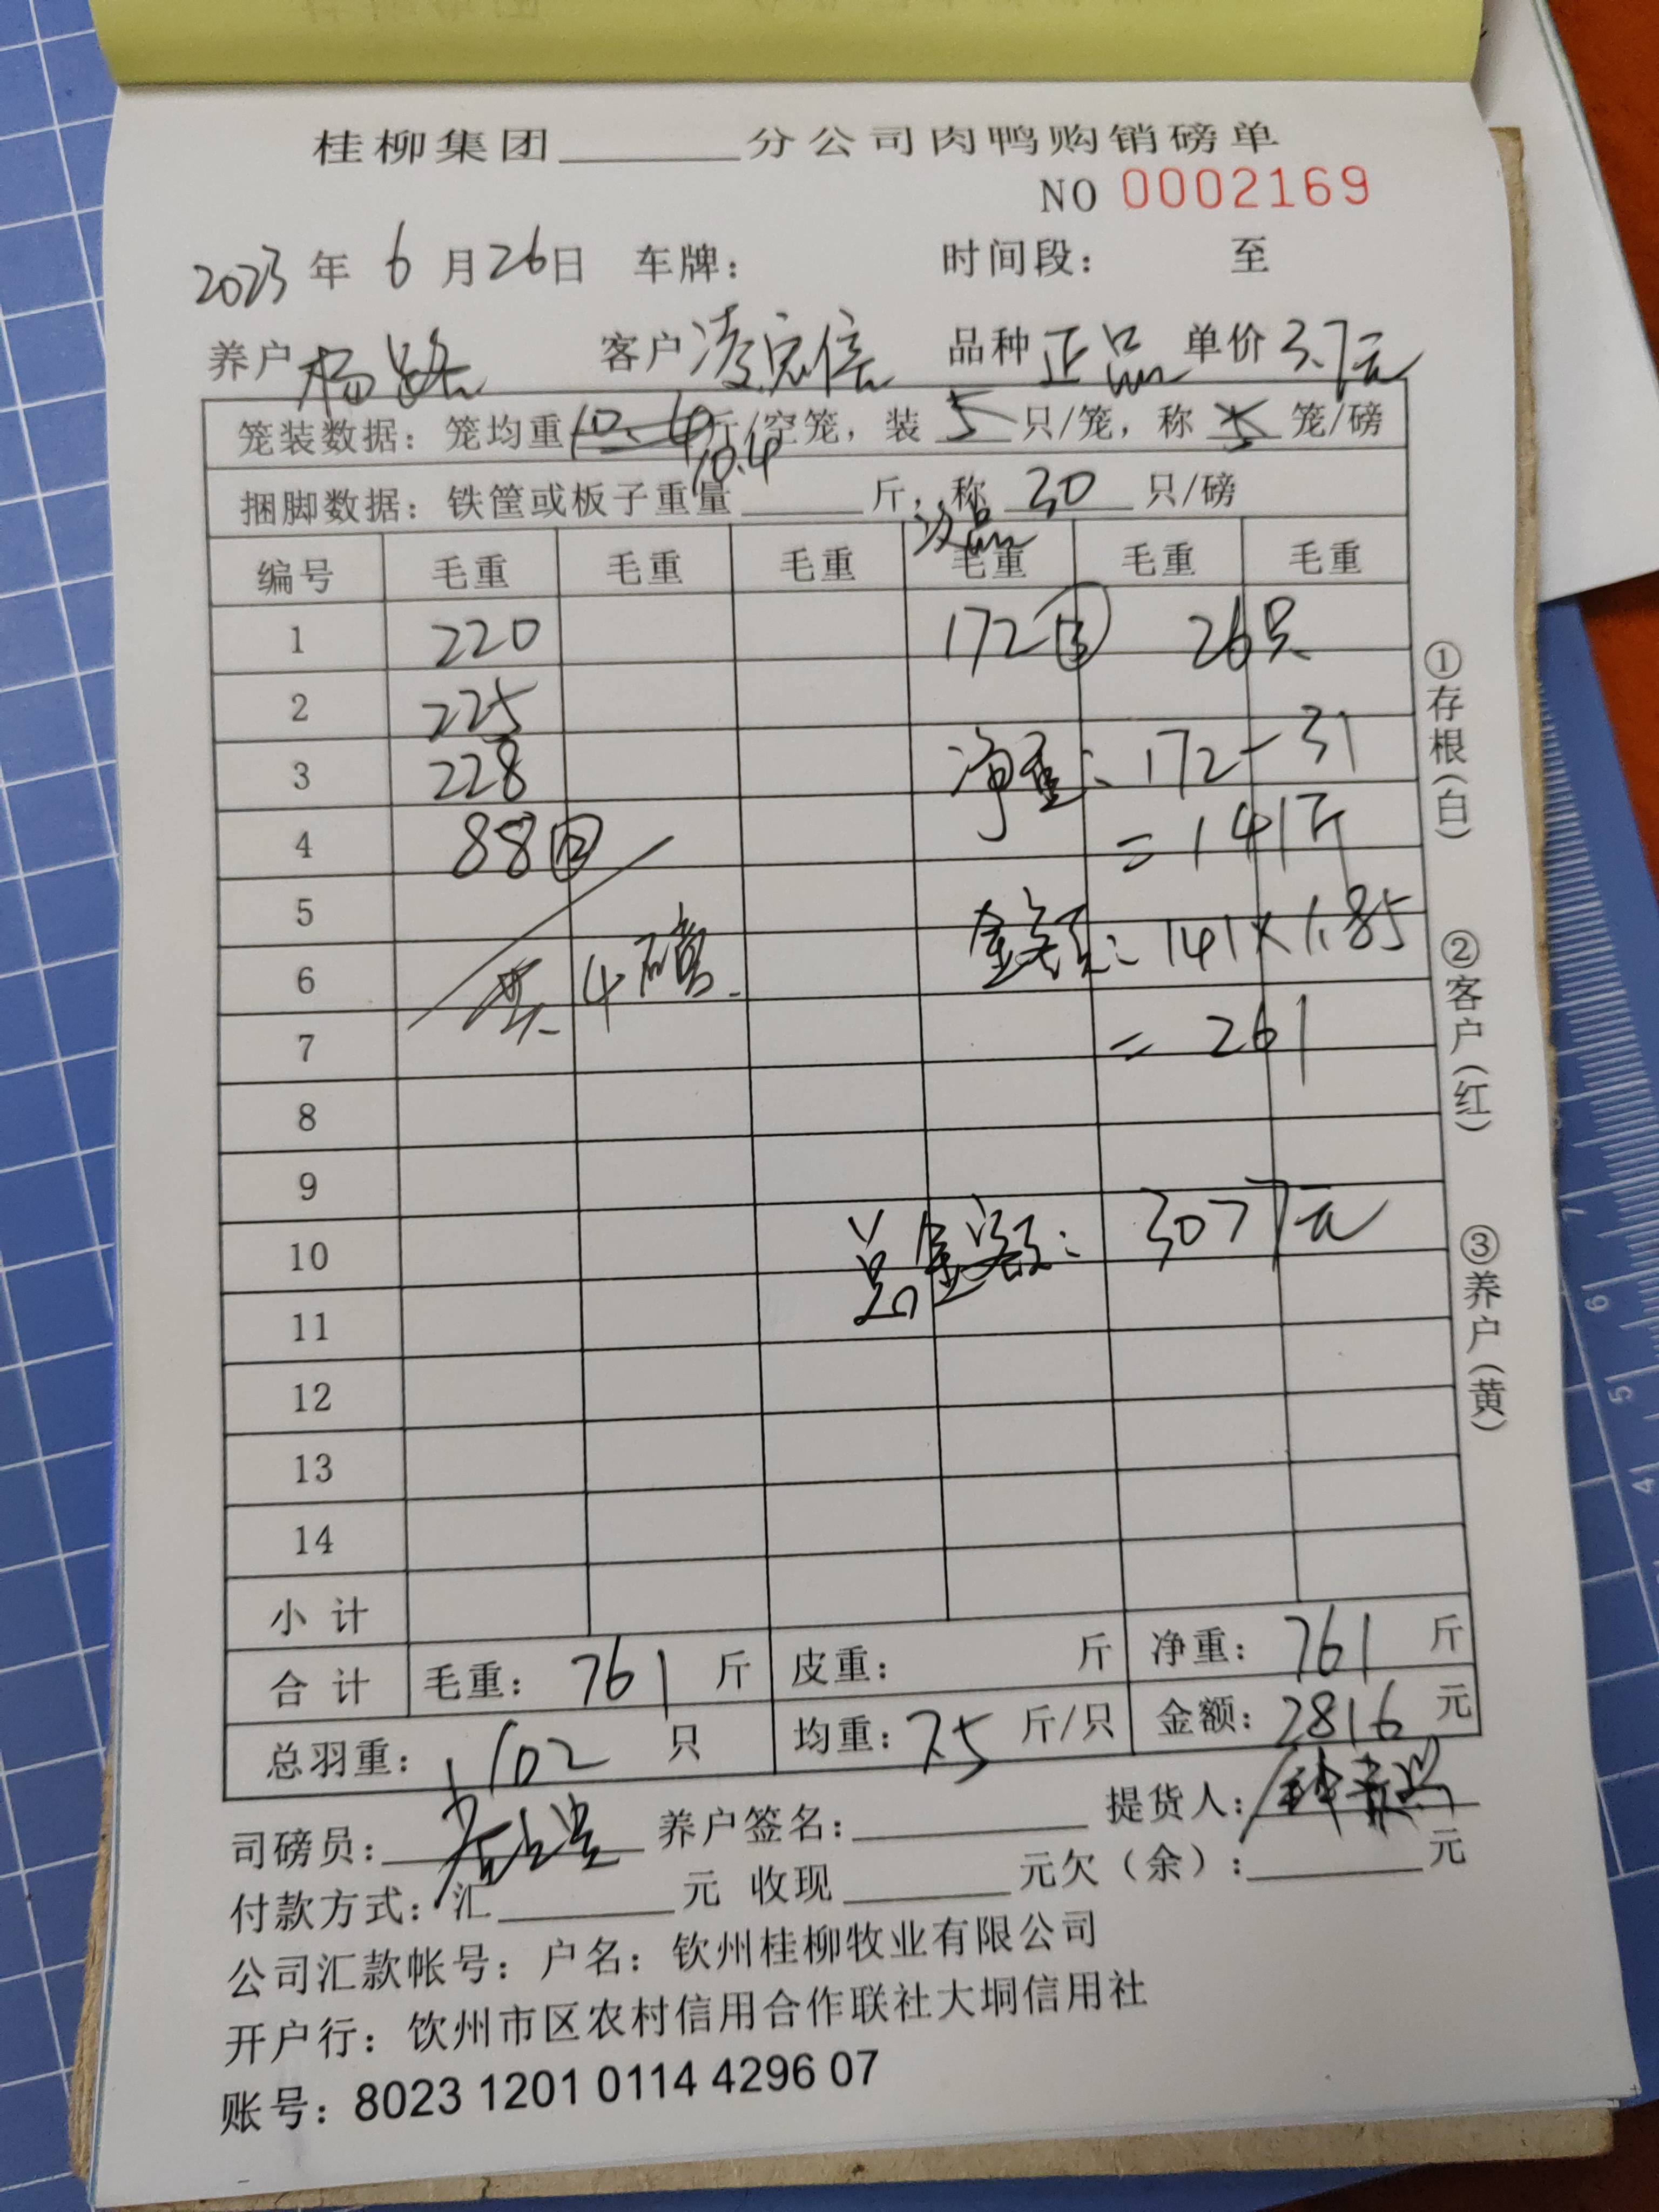 桂柳集团______分公司肉鸭购销磅单
NO 0002169
2023 年 6 月 26 日 车牌： 时间段： 至
养户 杨 客户 凌忠信 品种 正品 单价 3.7元
笼装数据：笼均重 10.4 斤/空笼，装 5 只/笼，称 5 笼/磅
10.4
捆脚数据：铁筐或板子重量______斤，称 30 只/磅
次品
编号 毛重 毛重 毛重 毛重 毛重 毛重
1 220 172③ 26只
2 225
3 228 净重：172-31
4 88⑫ =141斤
5 金额：141×1.85
6 共4磅.
7 =261
8
9
10 总金额：3077元
11
12
13
14
小计
合计 毛重：761 斤 皮重： 斤 净重：761 斤
总羽重：102 只 均重：7.5 斤/只 金额：2816 元
司磅员： 养户签名：______ 提货人：
付款方式：汇______元 收现______元欠（余）：______元
公司汇款帐号：户名：钦州桂柳牧业有限公司
开户行：钦州市区农村信用合作联社大垌信用社
账号：8023 1201 0114 4296 07
①存根（白）
②客户（红）
③养户（黄）